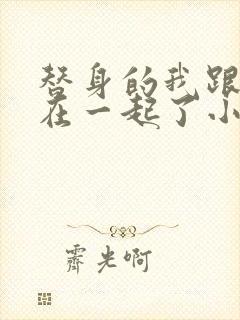 替身的我跟
在一起了小
霁光啊